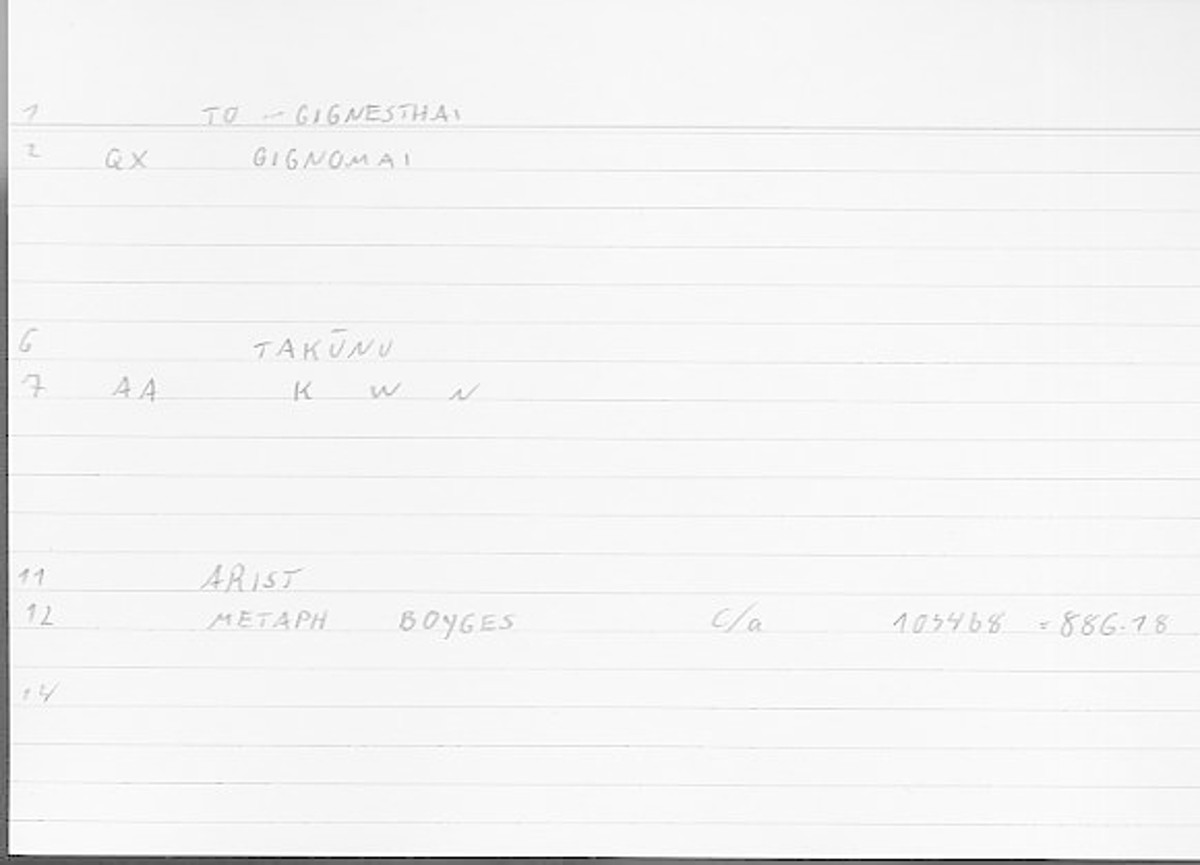 1 TO - GIGNESTHAI
2 QX GIGNOMAI
6 TAKŪNU
7 AA K W N
11 ARIST
12 METAPH BOYGES C/a 1054b8 = 886.18
14